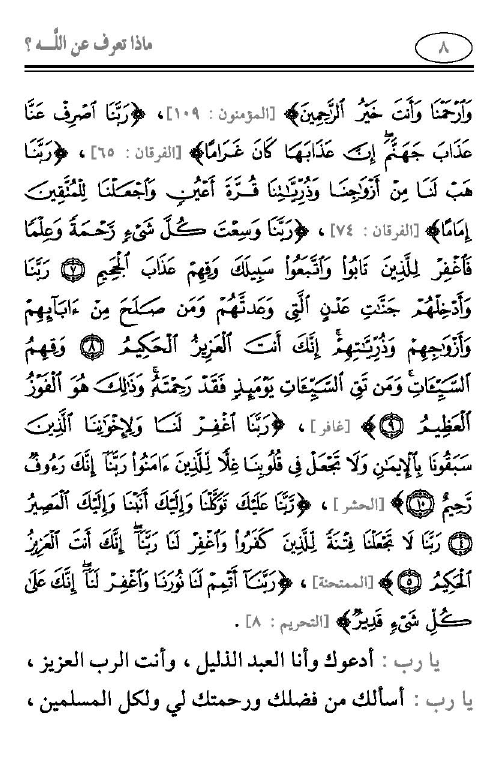 ٨ ماذا تعرف عن اللَّـه ؟
وَٱرْحَمْنَا وَأَنتَ خَيْرُ ٱلرَّٰحِمِينَ﴾ [المؤمنون : ١٠٩] ، ﴿رَبَّنَا ٱصْرِفْ عَنَّا
عَذَابَ جَهَنَّمَ ۖ إِنَّ عَذَابَهَا كَانَ غَرَامًا﴾ [الفرقان : ٦٥] ، ﴿رَبَّنَا
هَبْ لَنَا مِنْ أَزْوَٰجِنَا وَذُرِّيَّٰتِنَا قُرَّةَ أَعْيُنٍ وَٱجْعَلْنَا لِلْمُتَّقِينَ
إِمَامًا﴾ [الفرقان : ٧٤] ، ﴿رَبَّنَا وَسِعْتَ كُلَّ شَىْءٍ رَّحْمَةً وَعِلْمًا
فَٱغْفِرْ لِلَّذِينَ تَابُوا۟ وَٱتَّبَعُوا۟ سَبِيلَكَ وَقِهِمْ عَذَابَ ٱلْجَحِيمِ ۝٧ رَبَّنَا
وَأَدْخِلْهُمْ جَنَّٰتِ عَدْنٍ ٱلَّتِى وَعَدتَّهُمْ وَمَن صَلَحَ مِنْ ءَابَآئِهِمْ
وَأَزْوَٰجِهِمْ وَذُرِّيَّٰتِهِمْ ۚ إِنَّكَ أَنتَ ٱلْعَزِيزُ ٱلْحَكِيمُ ۝٨ وَقِهِمُ
ٱلسَّيِّـَٔاتِ ۚ وَمَن تَقِ ٱلسَّيِّـَٔاتِ يَوْمَئِذٍ فَقَدْ رَحِمْتَهُۥ ۚ وَذَٰلِكَ هُوَ ٱلْفَوْزُ
ٱلْعَظِيمُ ۝٩﴾ [غافر] ، ﴿رَبَّنَا ٱغْفِرْ لَنَا وَلِإِخْوَٰنِنَا ٱلَّذِينَ
سَبَقُونَا بِٱلْإِيمَٰنِ وَلَا تَجْعَلْ فِى قُلُوبِنَا غِلًّا لِّلَّذِينَ ءَامَنُوا۟ رَبَّنَآ إِنَّكَ رَءُوفٌ
رَّحِيمٌ ۝١٠﴾ [الحشر] ، ﴿رَّبَّنَا عَلَيْكَ تَوَكَّلْنَا وَإِلَيْكَ أَنَبْنَا وَإِلَيْكَ ٱلْمَصِيرُ
۝٤ رَبَّنَا لَا تَجْعَلْنَا فِتْنَةً لِّلَّذِينَ كَفَرُوا۟ وَٱغْفِرْ لَنَا رَبَّنَآ ۖ إِنَّكَ أَنتَ ٱلْعَزِيزُ
ٱلْحَكِيمُ ۝٥﴾ [الممتحنة] ، ﴿رَبَّنَآ أَتْمِمْ لَنَا نُورَنَا وَٱغْفِرْ لَنَآ ۖ إِنَّكَ عَلَىٰ
كُلِّ شَىْءٍ قَدِيرٌ﴾ [التحريم : ٨] .
يا رب : أدعوك وأنا العبد الذليل ، وأنت الرب العزيز ،
يا رب : أسألك من فضلك ورحمتك لي ولكل المسلمين ،